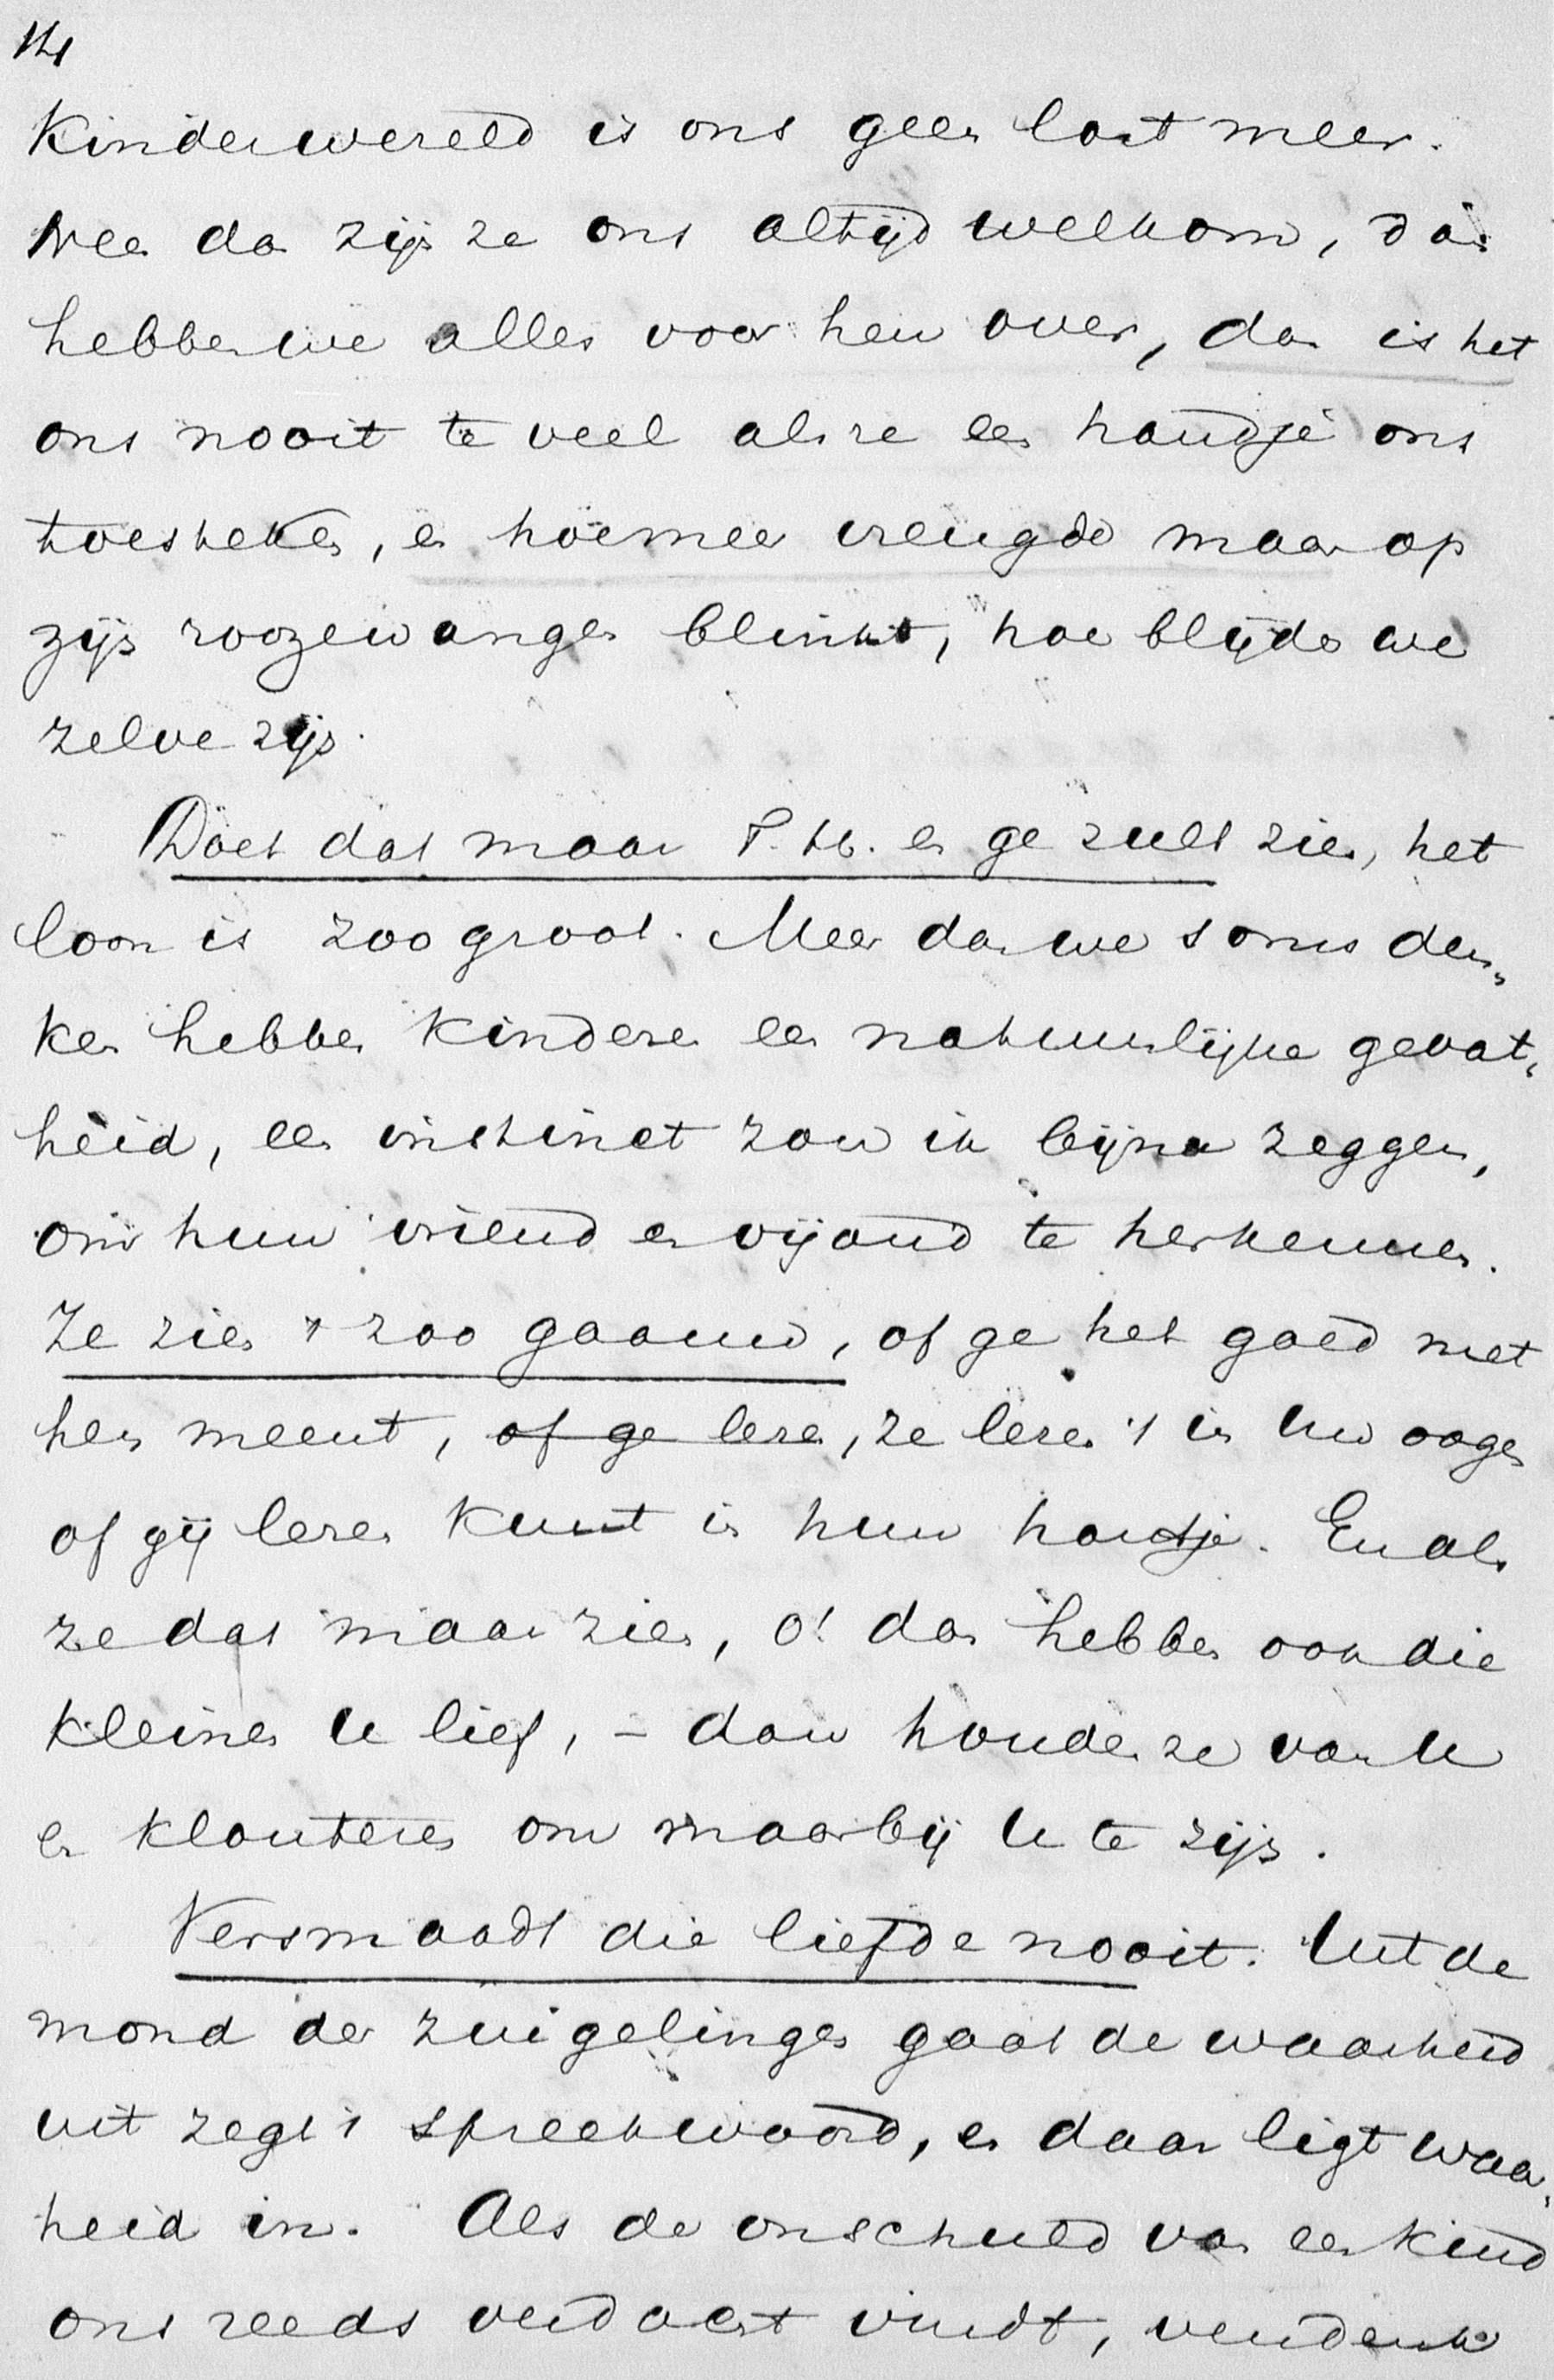 14
Kinderwereld is ons geen last meer.
Nee dan zijn ze ons altijd welkom, dan
hebben we alles voor hen over, dan is het
ons nooit te veel als ze een handje ons
toesteken, en hoe meer vreugde maar op
zijn roozewangen blinkt, hoe blijder we
zelve zijn.
Doet dat maar T. H. en ge zult zien, het
loon is zoo groot. Meer dan we soms den„
ken hebben kinderen een natuurlijke gevat„
heid, een instinct zou ik bijna zeggen,
om hun vriend en vijand te herkennen.
Ze zien 't zoo gaauw, of ge het goed met
hen meent, of ge lezen, ze lezen 't in Uw oogen
of gij lezen kunt in hun hartje. En als
ze dat maar zien, o! dan hebben ook die
kleinen U lief, – dan houden ze van U
en klouteren om maar bij U te zijn.
Versmaadt die liefde nooit. Uit de
mond der zuigelingen gaat de waarheid
uit zegt 't spreekwoord, en daar ligt waar„
heid in. Als de onschuld van een kind
ons reeds verdacht vindt, verdenk